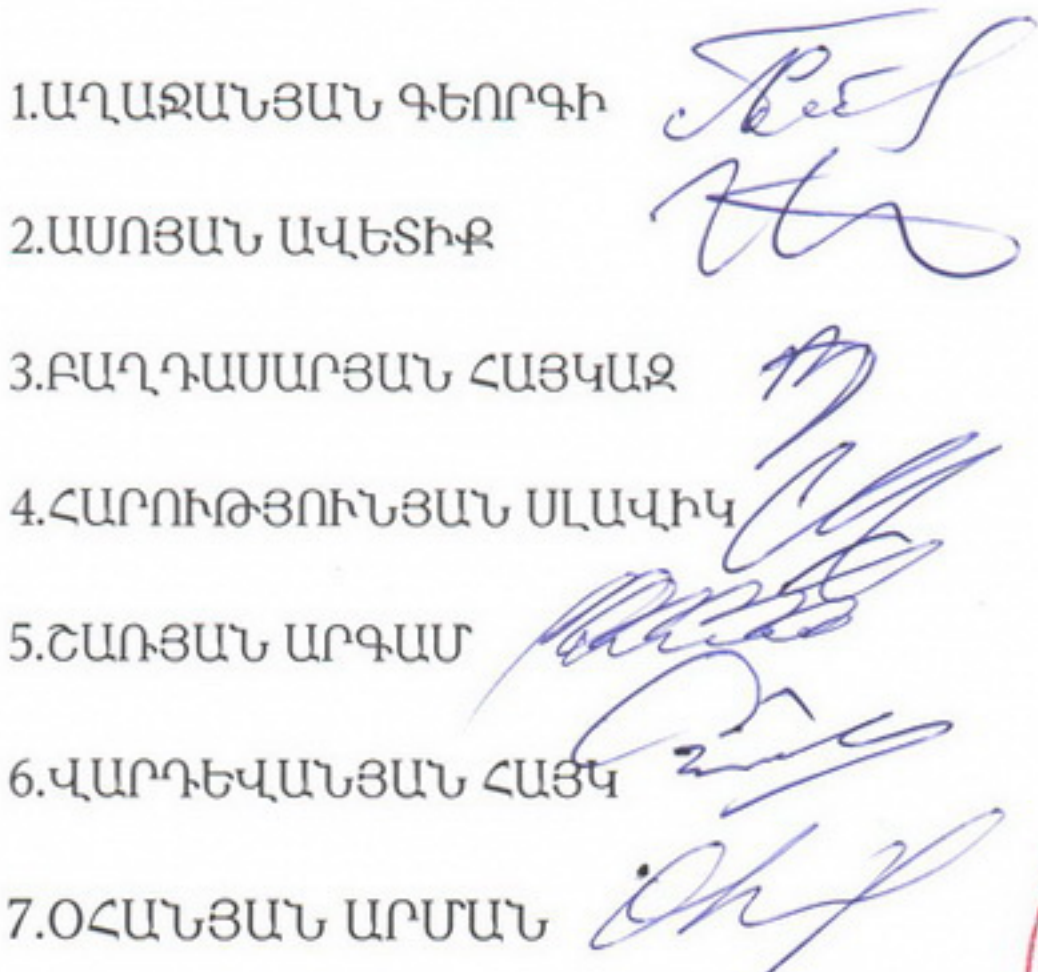 1.ԱՂԱՋԱՆՅԱՆ ԳԵՈՐԳԻ
2.ԱՍՈՅԱՆ ԱՎԵՏԻՔ
3.ԲԱՂԴԱՍԱՐՅԱՆ ՀԱՅԿԱԶ
4.ՀԱՐՈՒԹՅՈՒՆՅԱՆ ՍԼԱՎԻԿ
5.ՇԱՌՅԱՆ ԱՐԳԱՄ
6.ՎԱՐԴԵՎԱՆՅԱՆ ՀԱՅԿ
7.ՕՀԱՆՅԱՆ ԱՐՄԱՆ